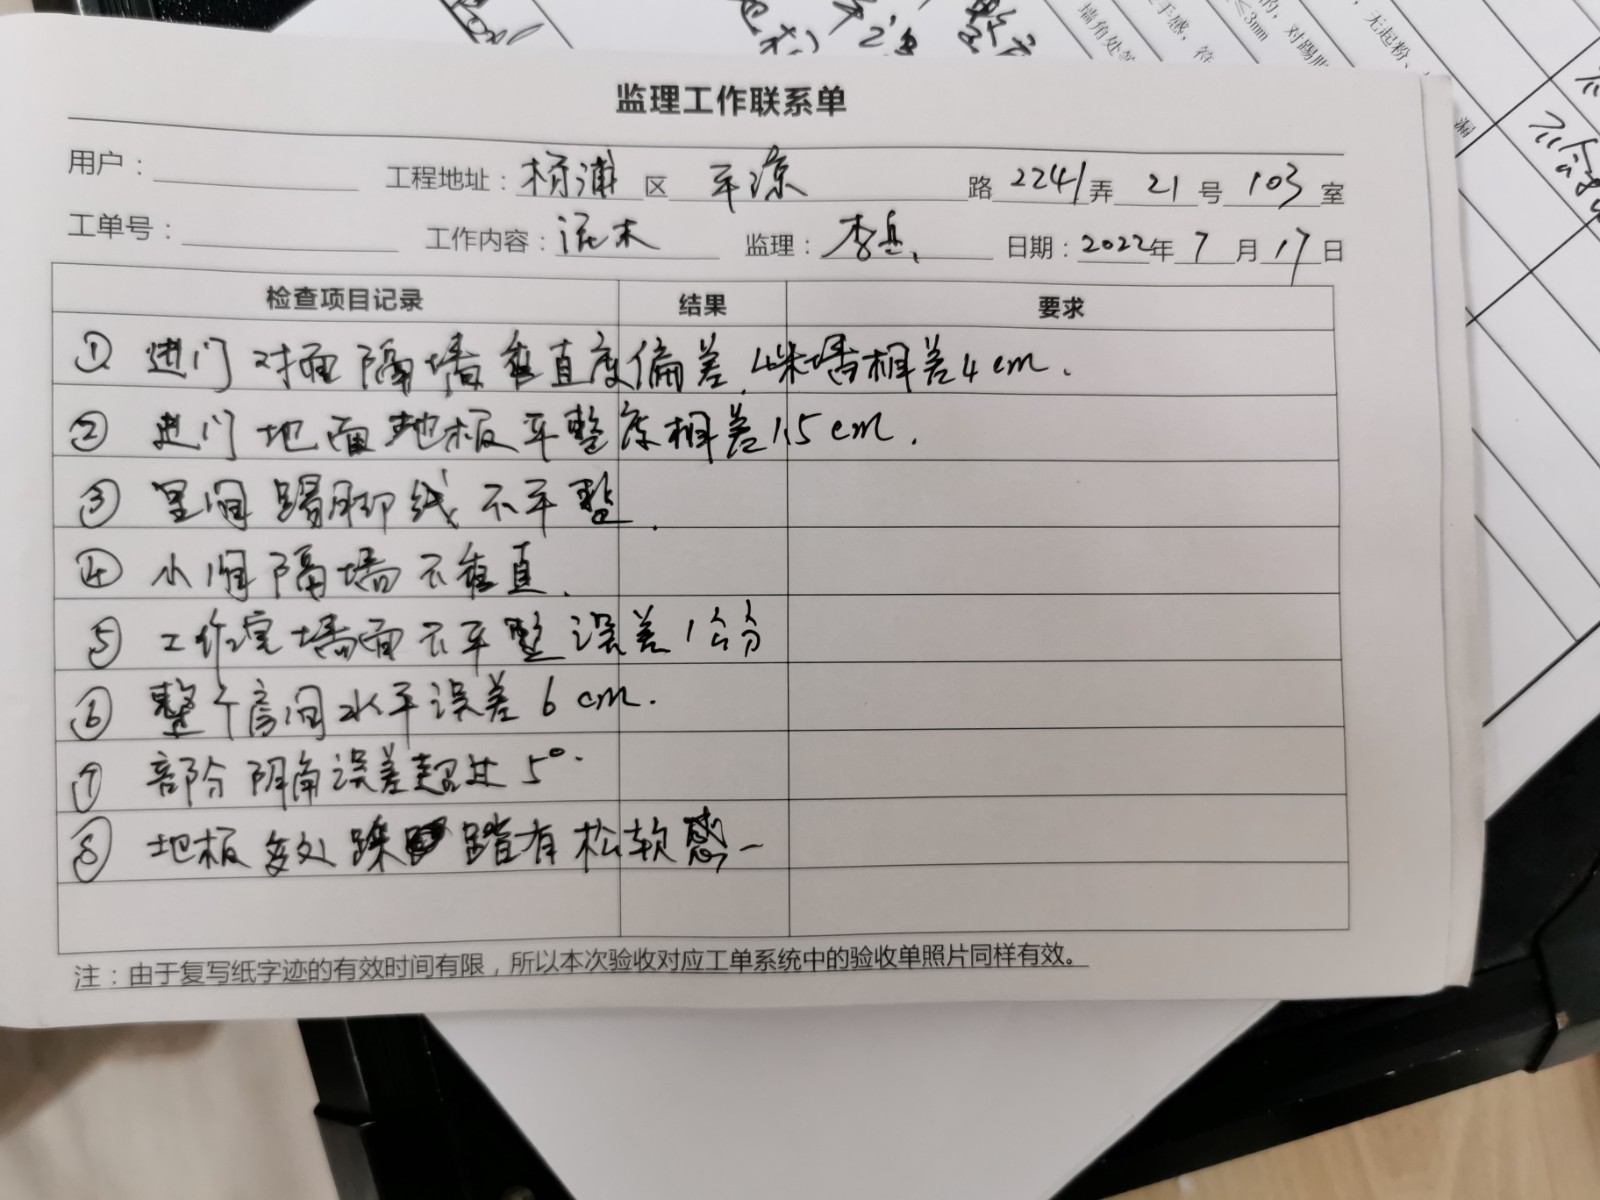 监理工作联系单
用户： 工程地址：杨浦区 平凉 路 2241弄 21号 103室
工单号： 工作内容：泥木 监理：李 日期：2022年7月17日
检查项目记录 结果 要求
① 进门对面隔墙垂直度偏差，4米墙相差4cm．
② 进门地面地板平整度相差1.5cm．
③ 里间踢脚线不平整．
④ 小间隔墙不垂直．
⑤ 工作室墙面不平整误差1公分
⑥ 整个房间水平误差6cm．
⑦ 部分阴角误差超过5°．
⑧ 地板多处踩踏有松软感
注：由于复写纸字迹的有效时间有限，所以本次验收对应工单系统中的验收单照片同样有效。
墙角处
手感，符
≤3mm
的，对踢脚
，无起粉、